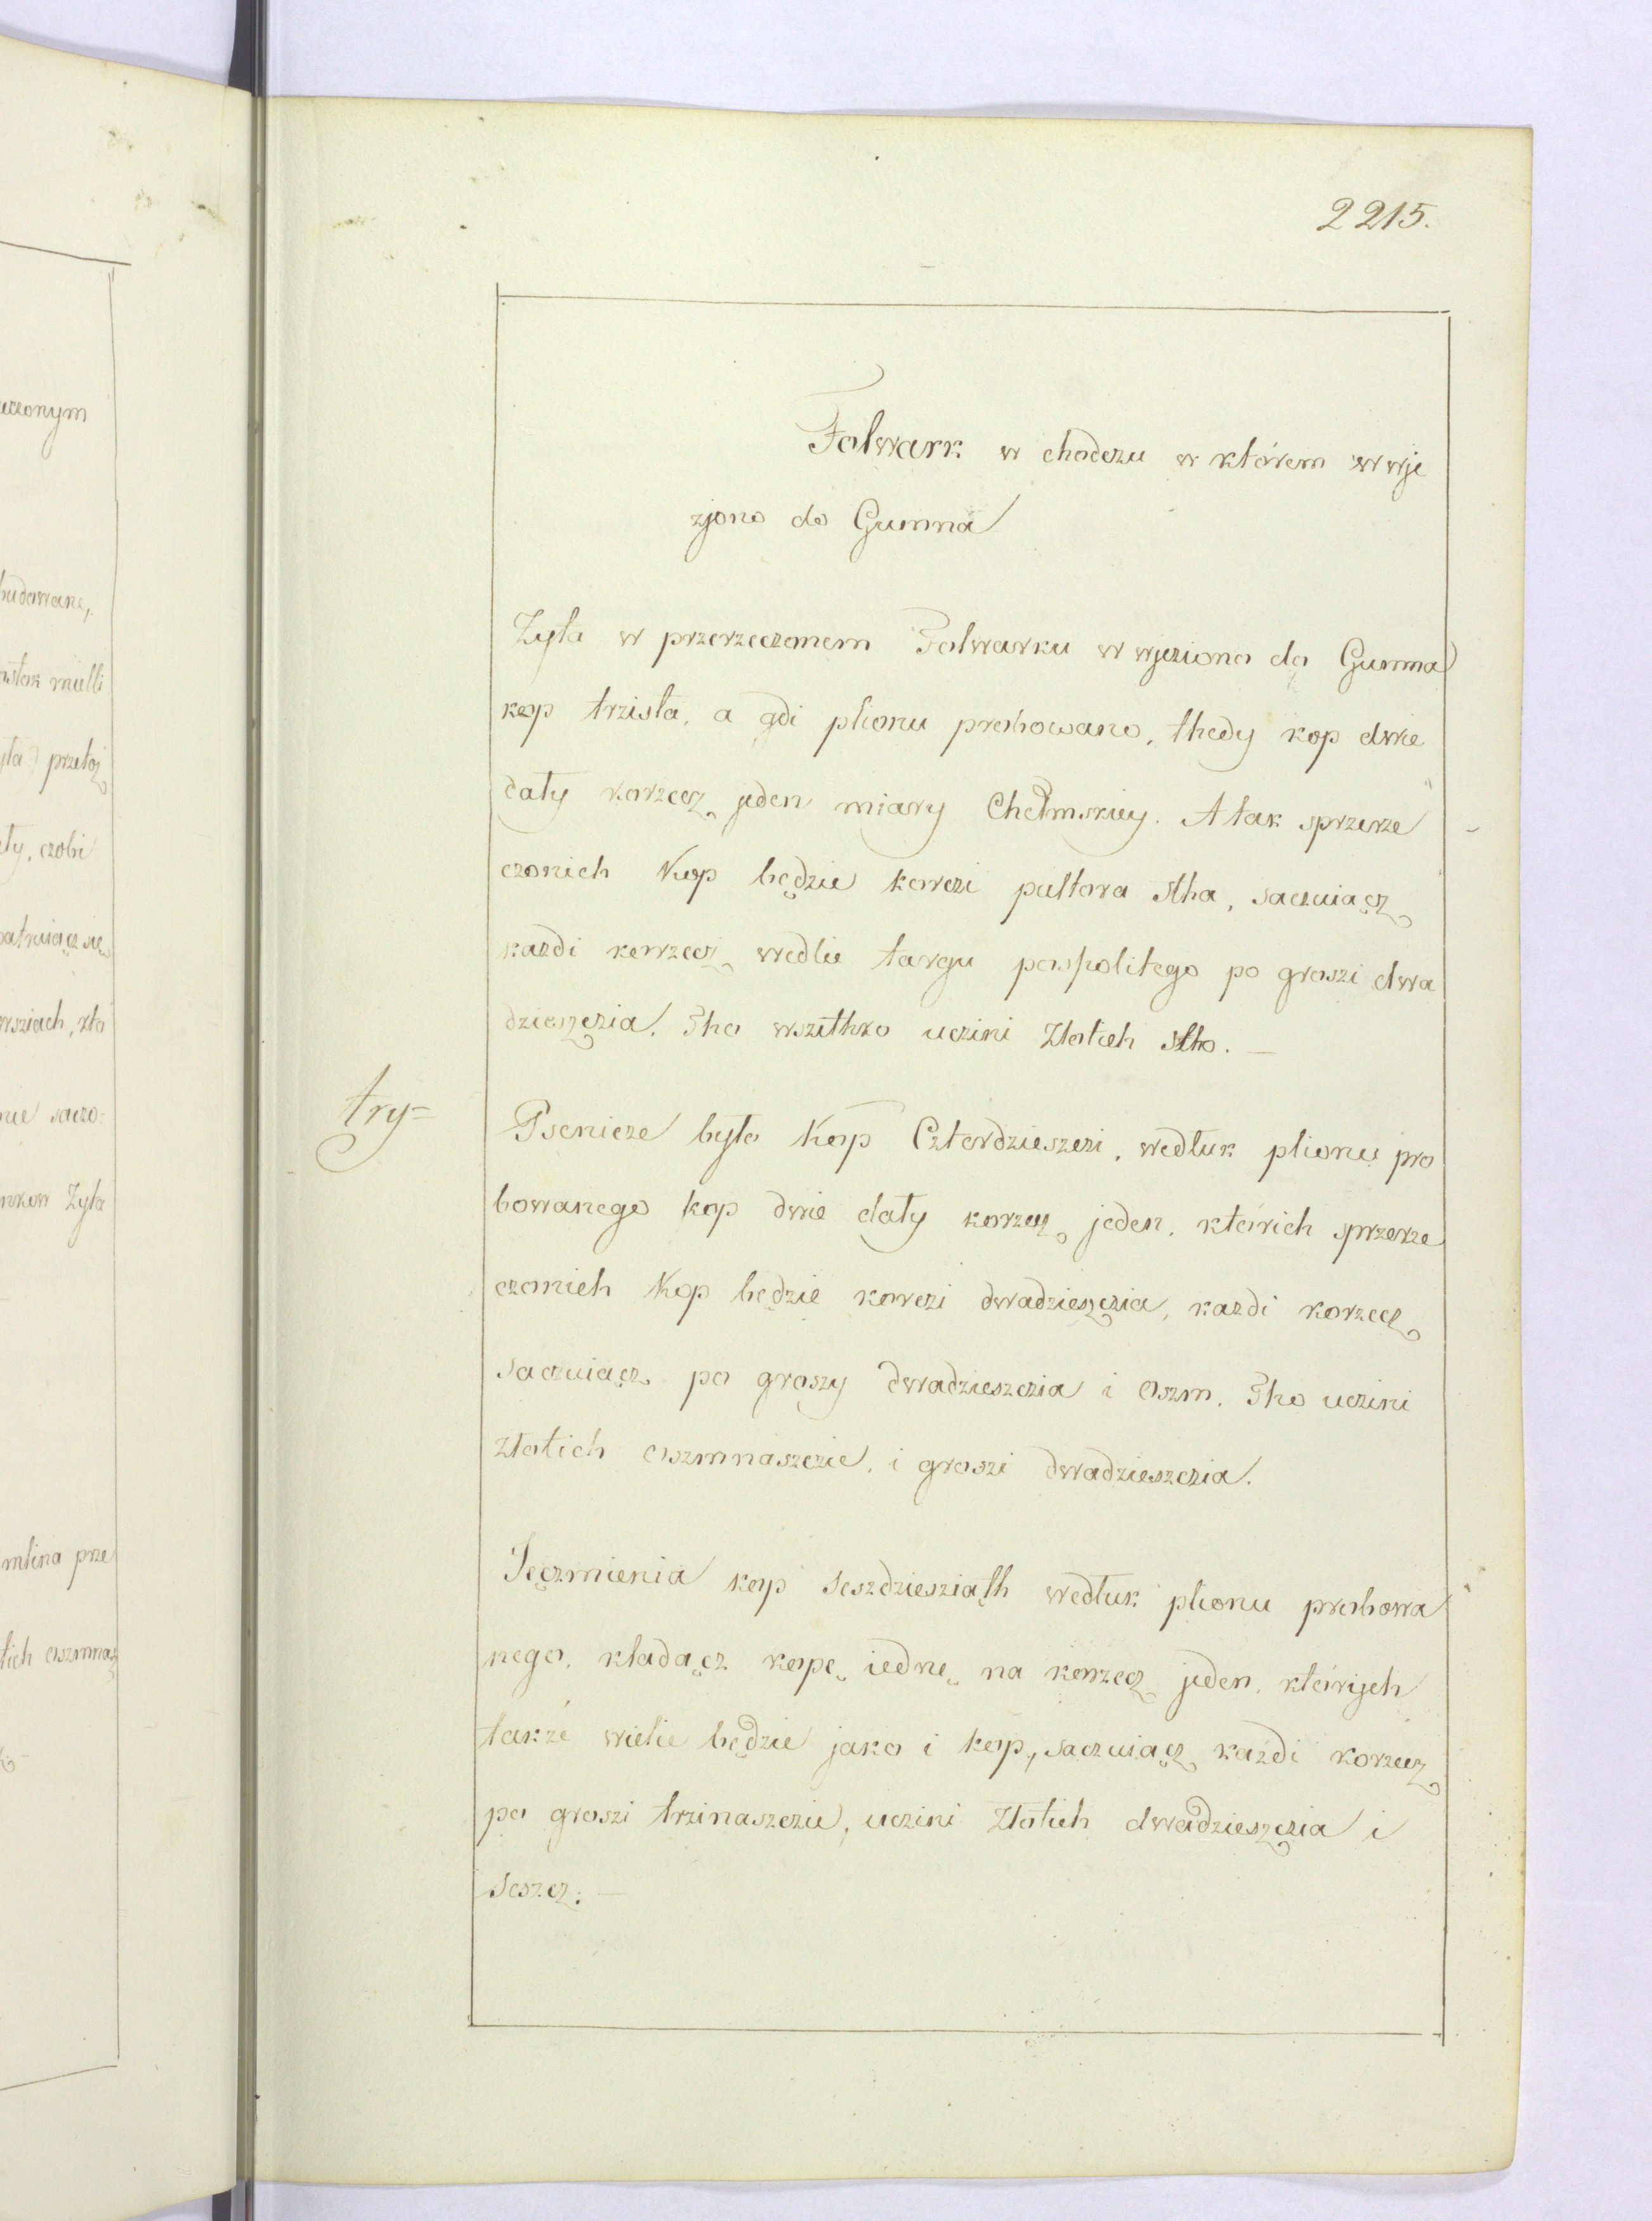 2215.
Folwark w chodczu w którem wwje
zjono do Gumna
Zyta w przerzeczonem Folwarku wwjeziono do Gumna
kop trzista, a gdi plionu probowano, thedy kop dwie
dały korzecz jeden miary Chełmskiey. A tak sprzerze
czonich Kop będzie korczi pułtora stha, saczuiącz
kazdi korzecz wedlie targu pospolitego po groszi dwa
dzieszczia. Tho wszithko uczini Złotich stho. —
try=
Psenicze było Kop Czterdzieszczi, wedłuk plionu pro
bowanego kop dwie dały korzecz jeden, którich sprzerze
czonich Kop będzie korczi dwadzieszczia, kazdi korzecz
saczuiącz po groszy dwadzieszczia i oszm. Tho uczini
złotich oszmnaszczie, i groszi dwadzieszczia.
Jęczmienia kop seszdziesziąth wedłuk plionu probowa
nego, kładącz kopę iednę na korzecz jeden, którijch
takze wielie będzie jako i kop, saczuiącz każdi korzecz
po groszi trzinaszczie, uczini Złotich dwadzieszczia i
seszcz. —
uczonym
budowane,
mielli
przetoż
ty, czobi
wsziach, zło
Zyta
młina prze
tich oszmnaz